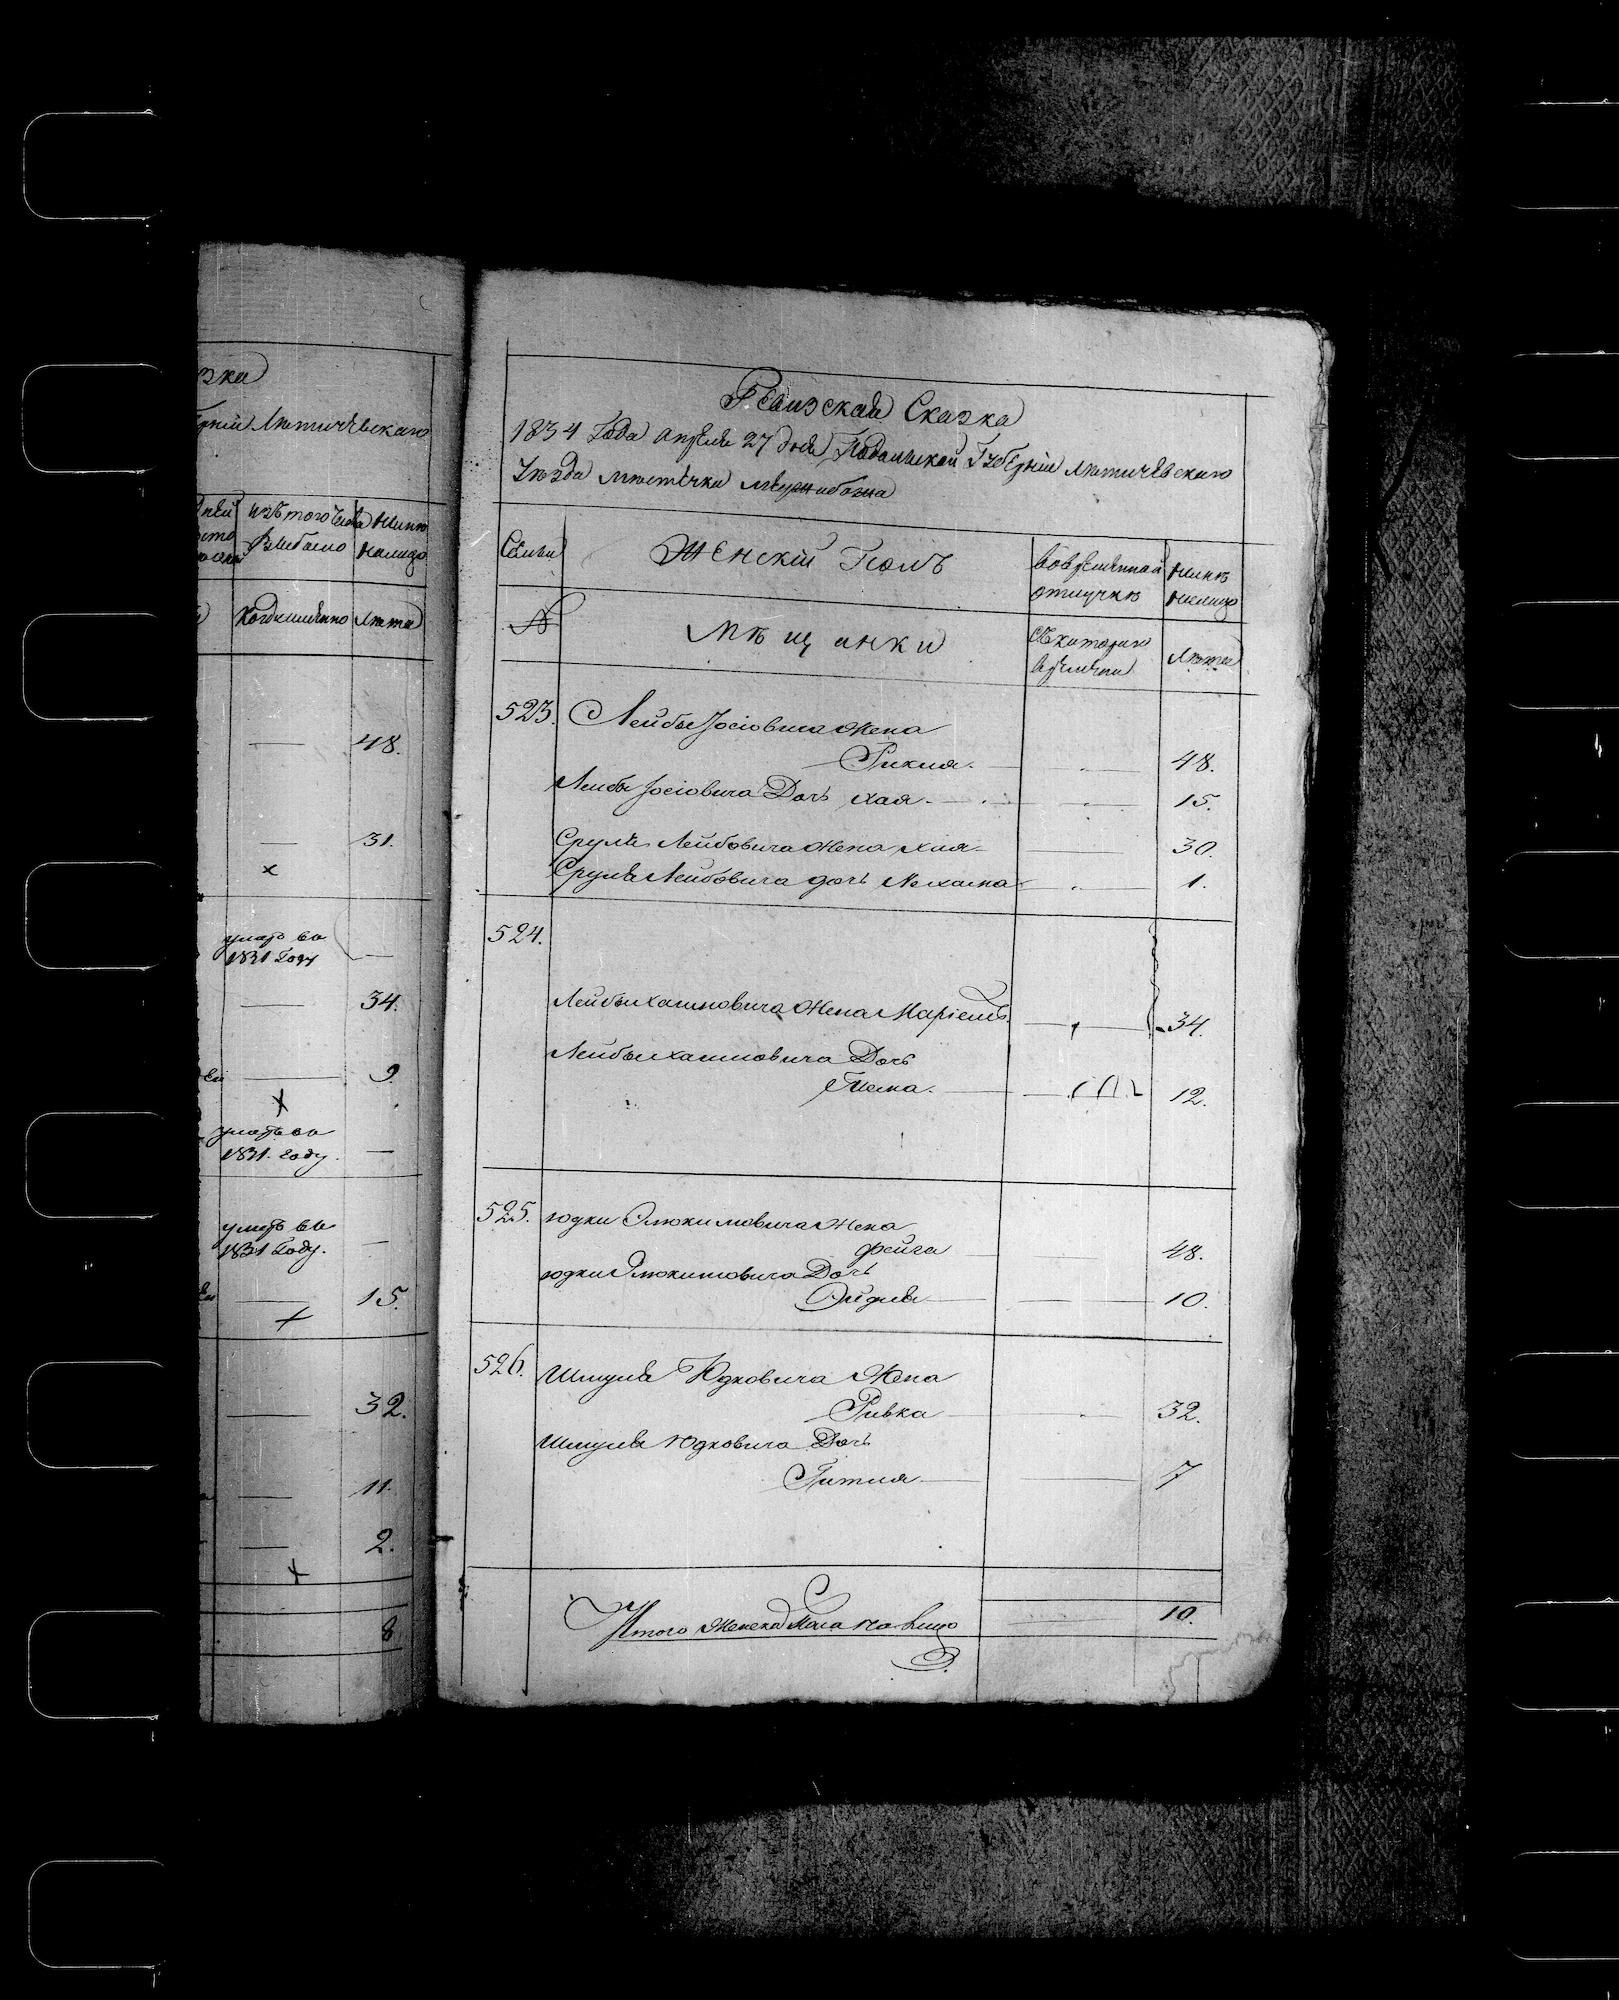 зка
Летичевскаго
изъ того числа
выбыло
Ныне
налицо
когда имянно
лѣта
48.
31.
х
умеръ въ
1831 Году
34.
9.
х
умеръ въ
1831. году.
умеръ въ
1831 Году.
15.
х
32.
11.
2.
х
8
Ревизская Сказка
1834 Года апреля 27 дня Подольской Губерніи Летичевскаго
Уезда местечка Меджибожа
Семьи
Женскій Полъ
вовременной
отлучке
Ныне
налицо
№
Мѣщанки
съкотораго
времени
Лета
523. Лейбы Іосіовича Жена
Рикля. 48.
Лейбы Іосіовича Дочь Хая. 15.
Сруля Лейбовича Жена Хая 30.
Сруля Лейбовича дочь Нехама 1.
524.
Лейбы Хаимовича Жена Маріемъ. 34.
Лейбы Хаимовича Дочь
12.
525. Юдки Жена
Фейга 48.
Юдки Дочь
Эйдля 10.
526. Шмуля Юдковича Жена
Ривка 32.
Шмуля Юдковича Дочь
Гитля 7
Итого Женска Пола на лицо 10.